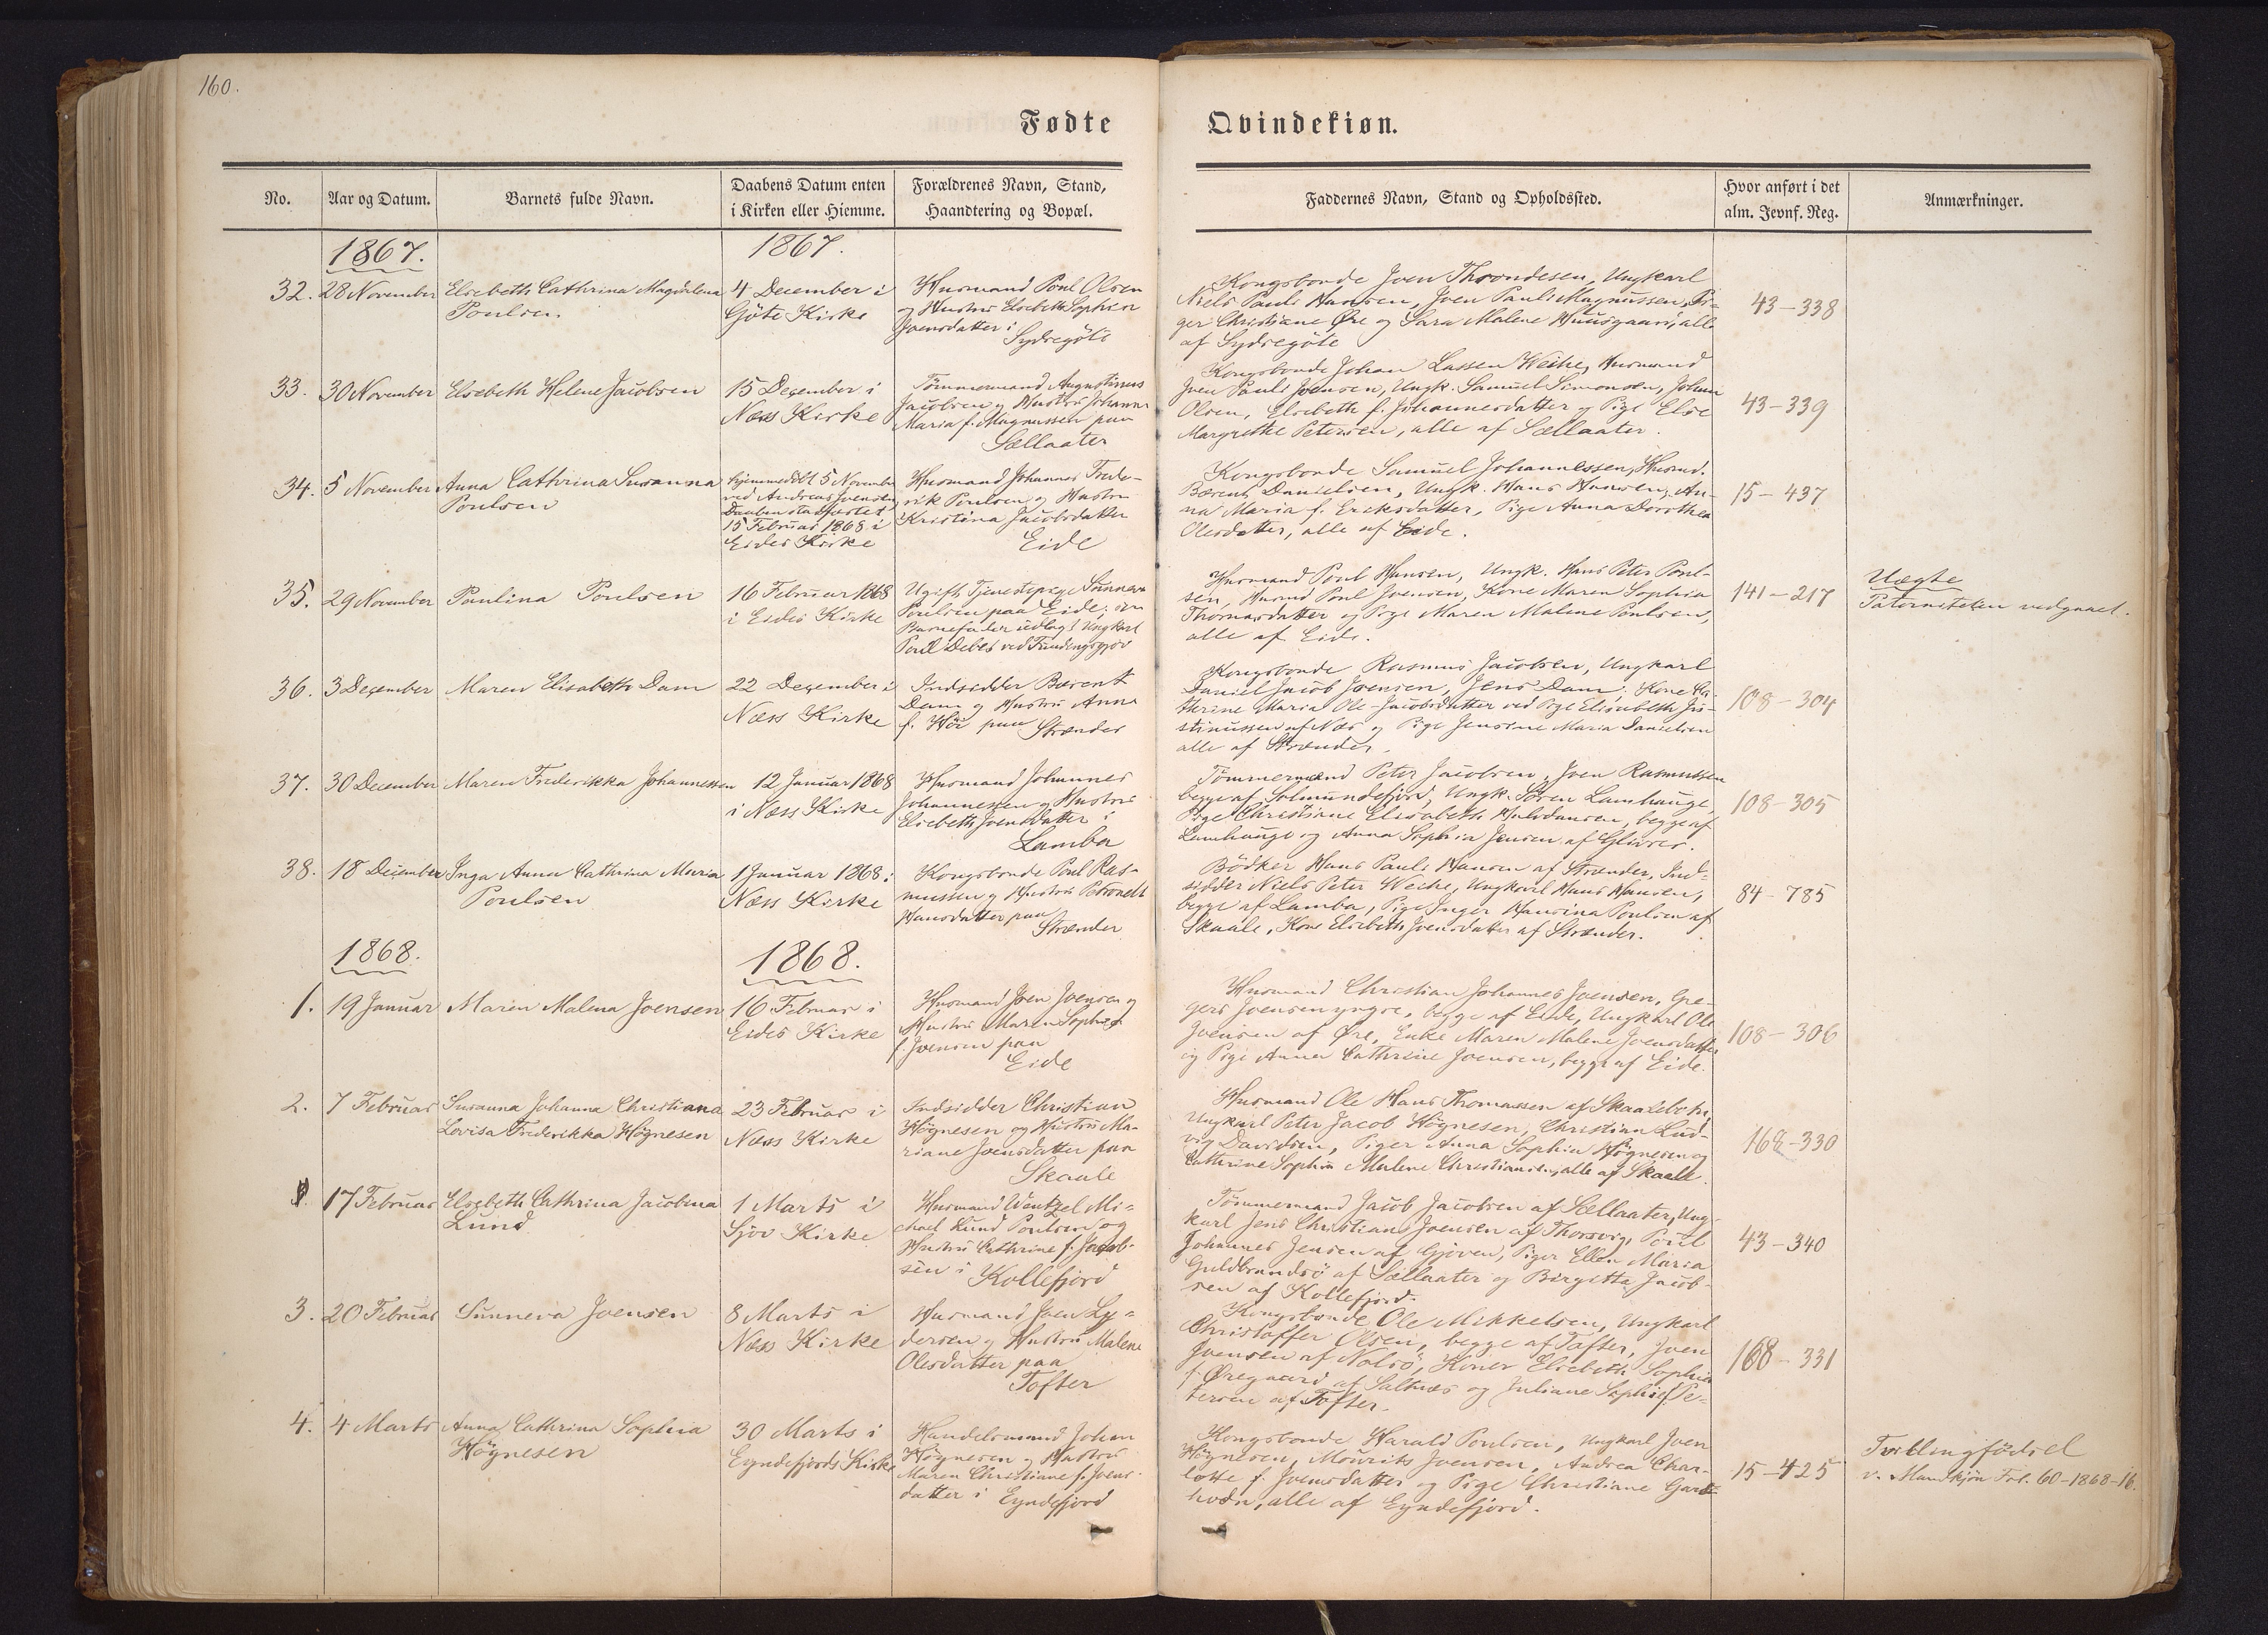 160.
Fødte
Qvindekiøn.
No.
Aar og Datum.
Barnets fulde Navn.
Daabens Datum enten
i Kirken eller Hiemme.
Forældrenes Navn, Stand,
Haandtering og Bopæl.
Faddernes Navn, Stand og Opholdssted.
Hvor anført i det
alm. Jevnf. Reg.
Anmærkninger.
1867.
1867.
32.
28 November
Elsebeth Cathrina Magdalena
Poulsen
4 December i
Göte Kirke
Husmand Poul Olsen
og Hustru Elsebeth Sophia
Joensdatter i
Sydregöte
Kongsbonde Joen Throndesen, Ungkarl
Niels Pauli Hansen, Joen Pauli Magnussen, Pi-
ger Christiane Øre og Sara Malene Huusgaard, alle
af Sydregöte
43-338
33.
30 November
Elsebeth Helene Jacobsen
15 December i
Næss Kirke
Tömmermand Augustinus
Jacobsen og Hustru Johanne
Maria f. Magnussen paa
Sællaater
Kongsbonde Johan Lassen Weihe, Husmand
Joen Pauli Joensen, Ungk. Samuel Simonsen, Johan
Olsen, Elsebeth f. Johannesdatter og Pige Else
Margrethe Petersen, alle af Sællaater.
43-339
34.
5 November
Anna Cathrina Susanna
Poulsen
hjemmedöbt 5 November
ved Andreas Joensen
Daaben stadfæstet
15 Februar 1868 i
Eides Kirke
Husmand Johannes Frede-
rik Poulsen og Hustru
Kristina Jacobsdatter
Eide
Kongsbonde Samuel Johannessen, Husmd.
Bærent Danielsen, Ungk. Hans Hansen, An-
na Maria f. Ericksdatter, Pige Anna Dorothea
Olesdatter, alle af Eide.
15-437
35.
29 November
Paulina Poulsen
16 Februar 1868
i Eides Kirke
Ugift Tjenestepige Sunneva
Poulsen paa Eide, som
Barnefader udlagt Ungkarl
Poul Debes ved Fundingsgjov
Husmand Poul Hansen, Ungk. Hans Peter Poul-
sen, Husmd Poul Joensen, Kone Maren Sophia
Thomasdatter og Pige Maren Malene Poulsen,
alle af Eide.
141-217
Uægte
Paterniteten vedgaaet.
36.
3 December
Maren Elisabeth Dam
22 December i
Næss Kirke
Indsidder Bærent
Dam og Hustru Anna
f. Hör paa Strænder
Kongsbonde Rasmus Jacobsen, Ungkarl
Daniel Jacob Joensen, Jens Dam, Kone Ca-
thrine Maria Ole-Jacobsdatter ved Pige Elisabeth Ju-
stinussen af Næs og Pige Jensine Maria Danielsen
alle af Strænder.
108-304
37.
30 December
Maren Frederikka Johannessen
12 Januar 1868
i Næss Kirke
Husmand Johannes
Johannessen og Hustru
Elsebeth Joensdatter i
Lamba
Tömmermænd Peter Jacobsen, Joen Rasmussen
begge af Solmundefjord, Ungk. Sören Lamhauge,
Pige Christiane Elisabeth, begge af
Lamhauge og Anna Sophia Jensen af Glivres.
108-305
38.
18 December
Inga Anna Cathrina Maria
Poulsen
1 Januar 1868 i
Næss Kirke
Kongsbonde Poul Ras-
mussen og Hustru Petronelle
Hansdatter paa
Strænder
Bödker Hans Pauli Hansen af Strænder, Ind-
sidder Niels Peter Weihe, Ungkarl Hans Hansen,
begge af Lamba, Pige Inger Hansina Poulsen af
Skaale, Kone Elsebeth Joensdatter af Strænder.
84-785
1868.
1868.
1.
19 Januar
Maren Malena Joensen
16 Februar i
Eides Kirke
Husmand Joen Joensen og
Hustru Maren Sophia
f. Joensen paa
Eide
Husmand Christian Johannes Joensen, Gre-
gers Joensen yngre, begge af Eide, Ungkarl Ole
Joensen af Øre, Enke Maren Malene Joensdatter
og Pige Anna Cathrine Joensen, begge af Eide.
108-306
2.
7 Februar
Susanna Johanna Christiana
Lovisa Frederikka Högnesen
23 Februar i
Næss Kirke
Indsidder Christian
Högnesen og Hustru Ma-
riane Joensdatter paa
Skaale
Husmand Ole Hans Thomassen af Skaalebotn,
Ungkarl Peter Jacob Högnesen, Christian Lud-
vig Davidsen, Piger Anna Sophia Högnesen og
Cathrine Sophia Malene Christiansen, alle af Skaale.
168-330
17 Februar
Elsebeth Cathrina Jacobina
Lund
1 Marts i
Sjov Kirke
Husmand Wentzel Mi-
chael Lund Poulsen og
Hustru Cathrine f. Jacob-
sen i Kollefjord
Tömmermand Jacob Jacobsen af Sællaater, Ung-
karl Jens Christian Joensen af Thorsvig, Poul
Johannes Jensen af Gjoven, Piger Ellen Maria
Guldbrandsö af Sællaater og Birgitta Jacob-
sen af Kollefjord.
43-340
3.
20 Februar
Sunneva Joensen
8 Marts i
Næss Kirke
Husmand Joen Ly-
dersen og Hustru Malene
Olesdatter paa
Tofter
Kongsbonde Ole Mikkelsen, Ungkarl
Christoffer Olsen, begge af Tofter, Joen
Joensen af Nolsö, Koner Elsebeth Sophia
f. Øregaard af Saltnæs og Juliane Sophie f. Pe-
tersen af Tofter.
168-331
4.
4 Marts
Anna Cathrina Sophia
Högnesen
30 Marts i
Eyndefjords Kirke
Handelsmand Johan
Högnesen og Hustru
Maren Christiane f. Joens-
datter i Eyndefjord
Kongsbonde Harald Poulsen, Ungkarl Joen
Högnesen, Mourits Joensen, Andrea Char-
lotte f. Joensdatter og Pige Christiane Gart-
hodn, alle af Eyndefjord.
15-425
Tvillingfødsel
v. Mandkjön Fol. 60-1868-16.